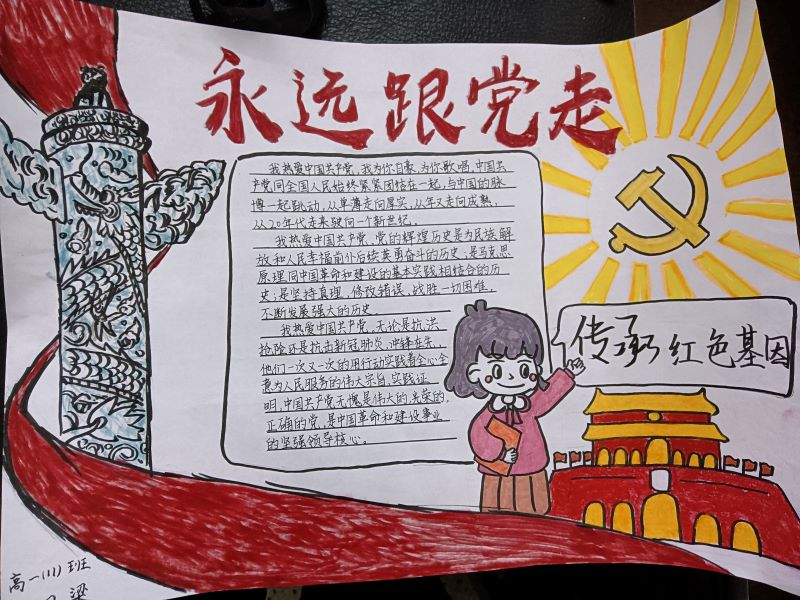 永远跟党走
我热爱中国共产党,我为你自豪,为你歌唱,中国共
产党同全国人民始终紧紧团结在一起,与中国的脉
搏一起跳动,从单薄走向厚实,从年又走向成熟,
从20年代走来驶向一个新世纪。
我热爱中国共产党,党的辉煌历史是为民族解
放和人民幸福前仆后续英勇奋斗的历史;是马克思
原理同中国革命和建设的基本实践相结合的历
史;是坚持真理,修改错误,战胜一切困难,
不断发展强大的历史
我热爱中国共产党,无论是抗洪
抢险还是抗击新冠肺炎,冲锋在先,
他们一次又一次的用行动实践着全心全
意为人民服务的伟大宗旨,实践证
明,中国共产党无愧是伟大的,光荣的,
正确的党,是中国革命和建设事业
的坚强领导核心。
传承红色基因
高一(11)班
梁